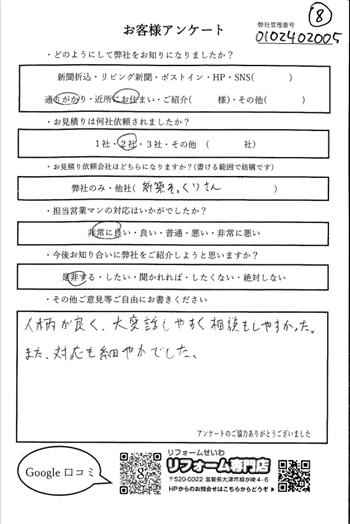 ⑧
お客様アンケート
弊社管理番号
0102402005
・どのようにして弊社をお知りになりましたか？
新聞折込・リビング新聞・ポストイン・HP・SNS(　　　)
通りがかり・近所にお住まい・ご紹介(　　　様)・その他(　　　)
・お見積りは何社依頼されましたか？
1社・2社・3社・その他 (　　　社)
・お見積り依頼会社はどちらになりますか？(書ける範囲で結構です)
弊社のみ・他社( 新築そっくりさん )
・担当営業マンの対応はいかがでしたか？
非常に良い・良い・普通・悪い・非常に悪い
・今後お知り合いに弊社をご紹介しようと思いますか？
是非する・したい・聞かれれば・したくない・絶対しない
・その他ご意見等ご自由にお書きください
人柄が良く、大変話しやすく相談もしやすかった。
また、対応も細やかでした。
アンケートのご協力ありがとうございました
Google 口コミ
リフォームせいわ
リフォーム専門店
〒520-0022 滋賀県大津市柳が崎4-6
HPからのお問合せはこちらからどうぞ